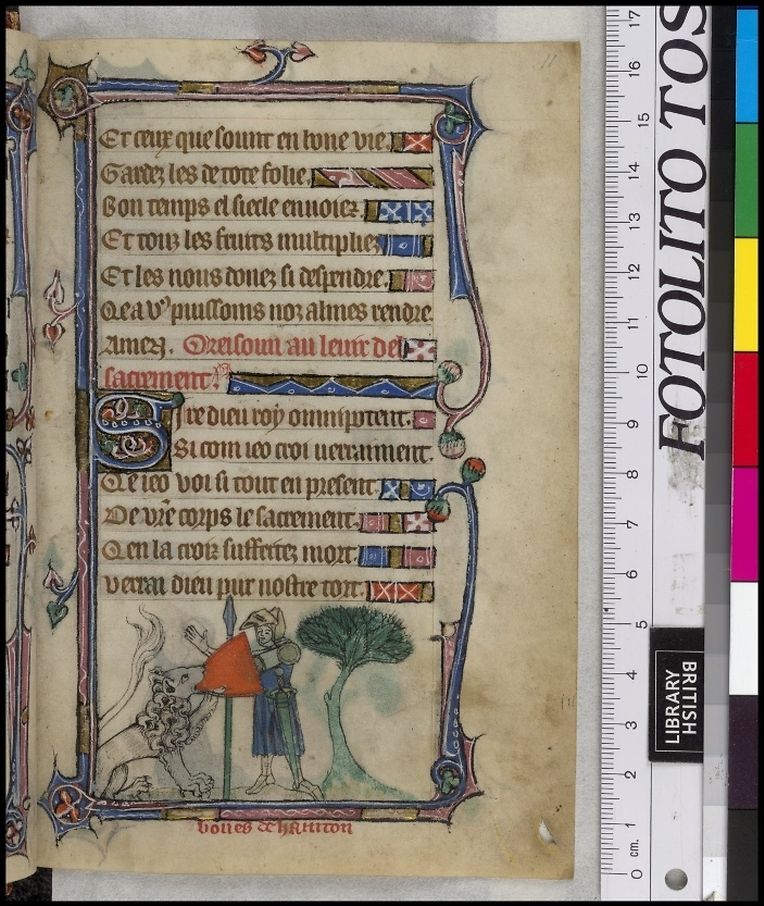 Et ceux que sount en bone vie.
Gardez les de tote folie.
Bon temps el siecle enuoiez.
Et touz les fruits multipliez
Et les nous donez si despendre.
Qe a v9 puissoms noz almes rendre
Amen. Oreisoun au leuer del
sacrement.
Sire dieu roy omnipotent.
Si com ieo croi uerraiment.
Qe ieo voi si tout en present.
De vr̄e corps le sacrement.
Qen la croiz suffretez mort.
verrai dieu pur nostre tort.
boues de hamton
11
FOTOLITO LOTOS
BRITISH
LIBRARY
0 cm. 1 2 3 4 5 6 7 8 9 10 11 12 13 14 15 16 17